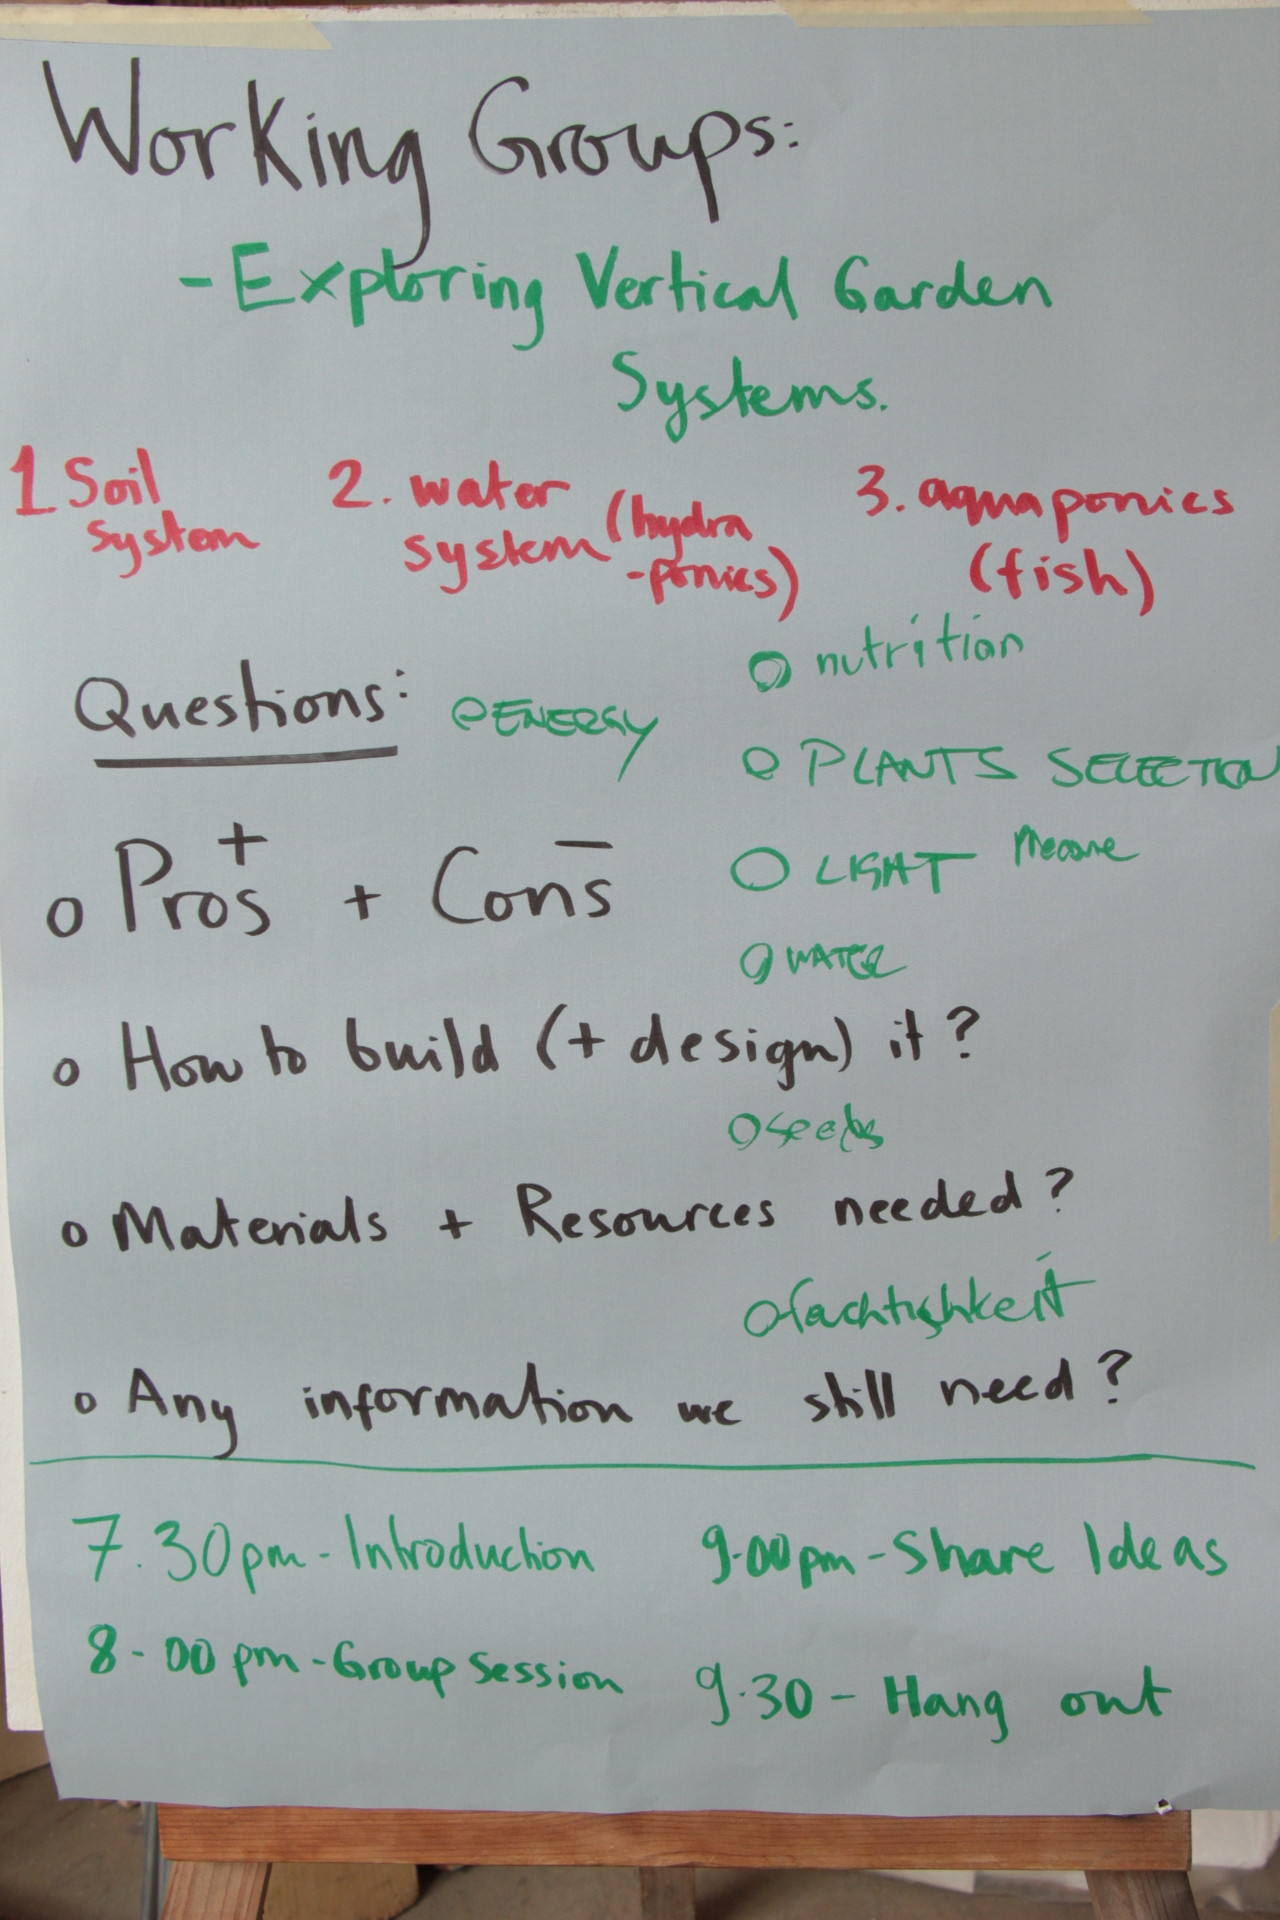 Working Groups:
- Exploring Vertical Garden
Systems.
1 Soil
system
2. water
system (hydra
-ponics)
3. aquaponics
(fish)
o nutrition
Questions:
o ENERGY
o PLANTS SELECTION
o Pros + Cons
+ −
o LIGHT
o WATER
o How to build (+ design) it?
o seeds
o Materials + Resources needed?
o Any information we still need?
7.30pm - Introduction
9.00pm - Share Ideas
8-00pm - Group Session
9.30 - Hang out